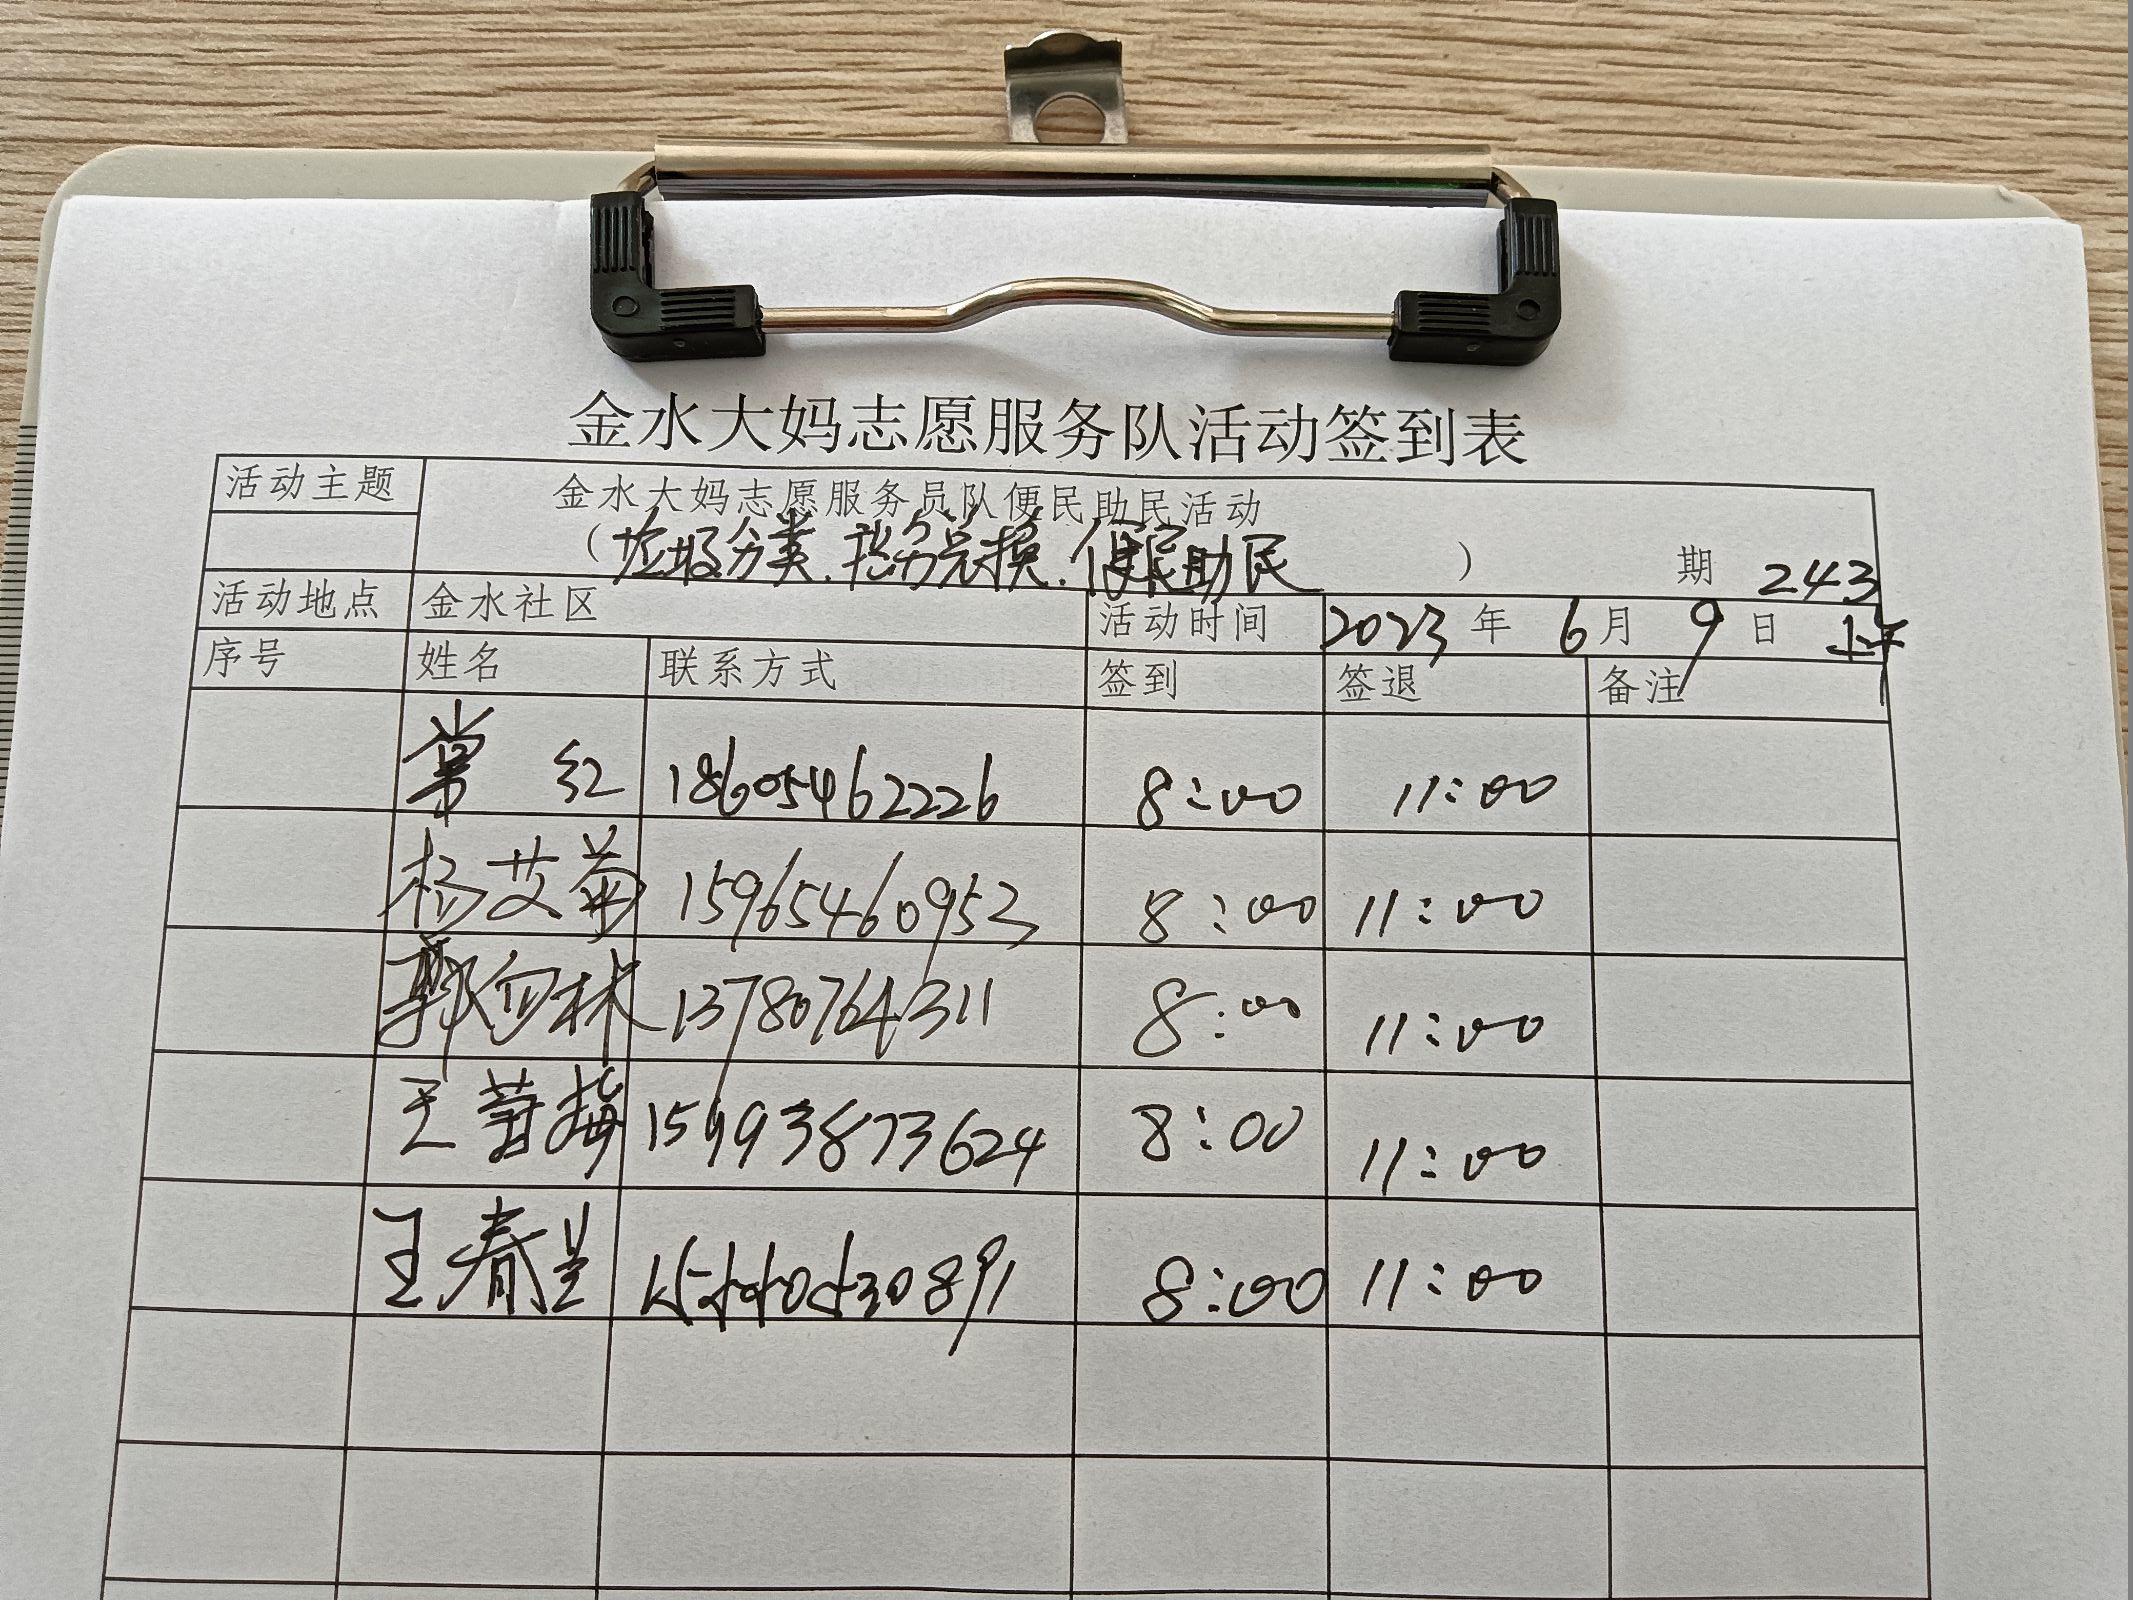 金水大妈志愿服务队活动签到表
活动主题
金水大妈志愿服务员队便民助民活动
（垃圾分类.积分兑换.便民助民） 期 243
活动地点 金水社区 活动时间 2023年6月9日 上午
序号 姓名 联系方式 签到 签退 备注
常红 18605462226 8:00 11:00
杨艾菊 15965460952 8:00 11:00
郭 林 13780764311 8:00 11:00
王 梅 15993873624 8:00 11:00
王春兰 8:00 11:00